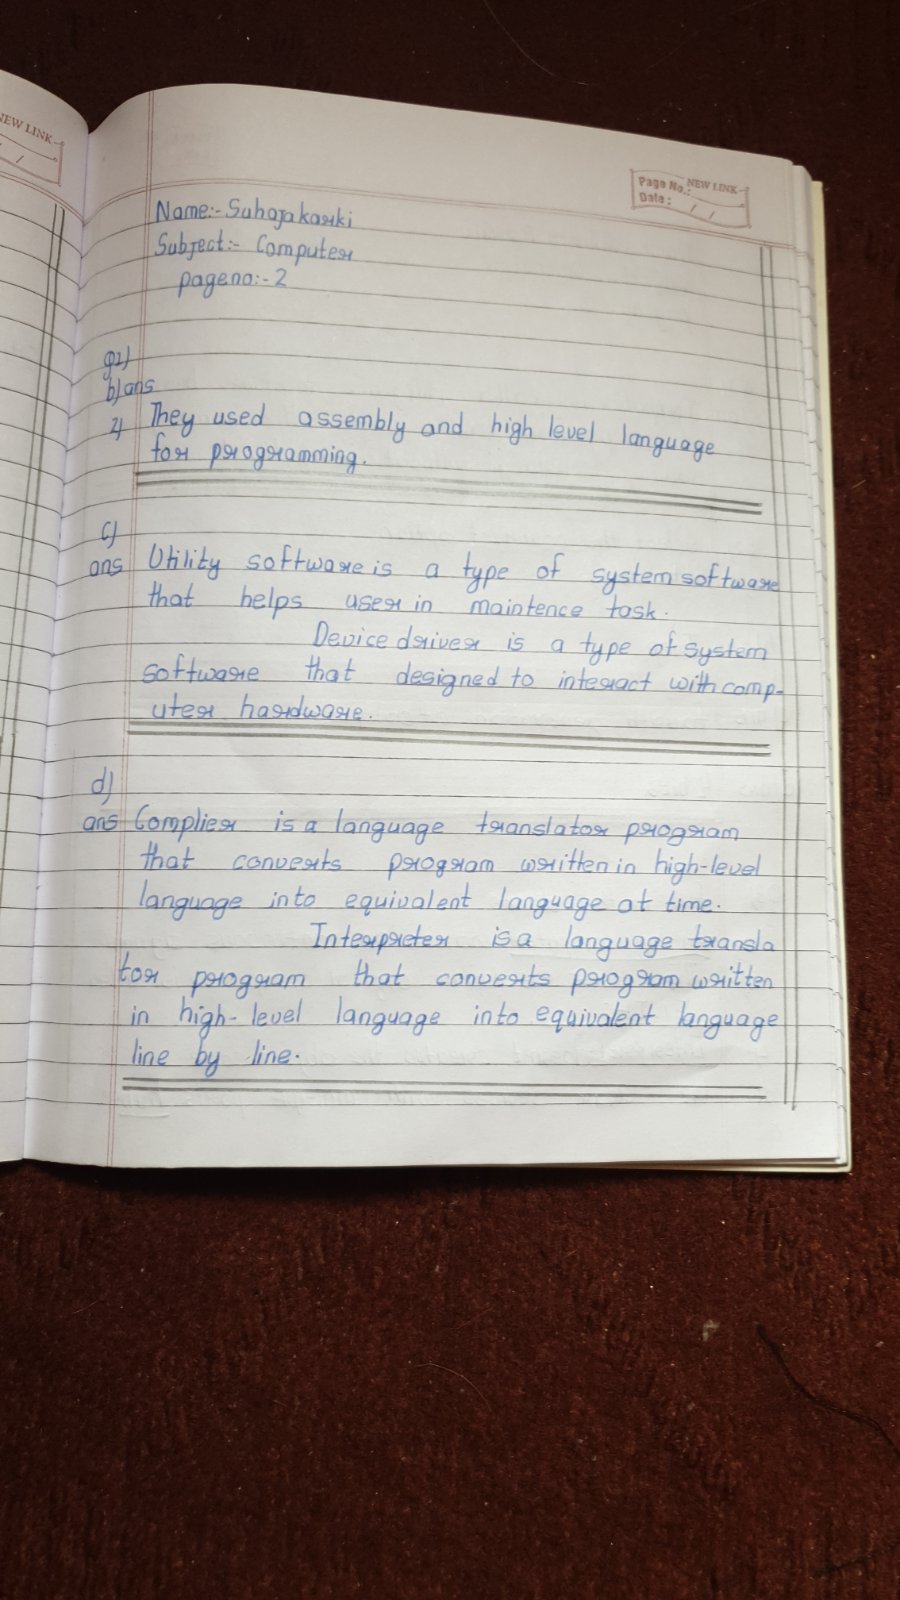 NEW LINK
Page No.: NEW LINK
Date: / /
Name:- Suhoja karki
Subject:- Computer
page no:- 2
Q2)
b) ans
2) They used assembly and high level language
for programming.
c)
ans Utility software is a type of system software
that helps user in maintence task.
Device driver is a type of system
software that designed to interact with comp-
uter hardware.
d)
ans Complier is a language translator program
that converts program written in high-level
language into equivalent language at time.
Interpreter is a language transla
tor program that converts program written
in high-level language into equivalent language
line by line.